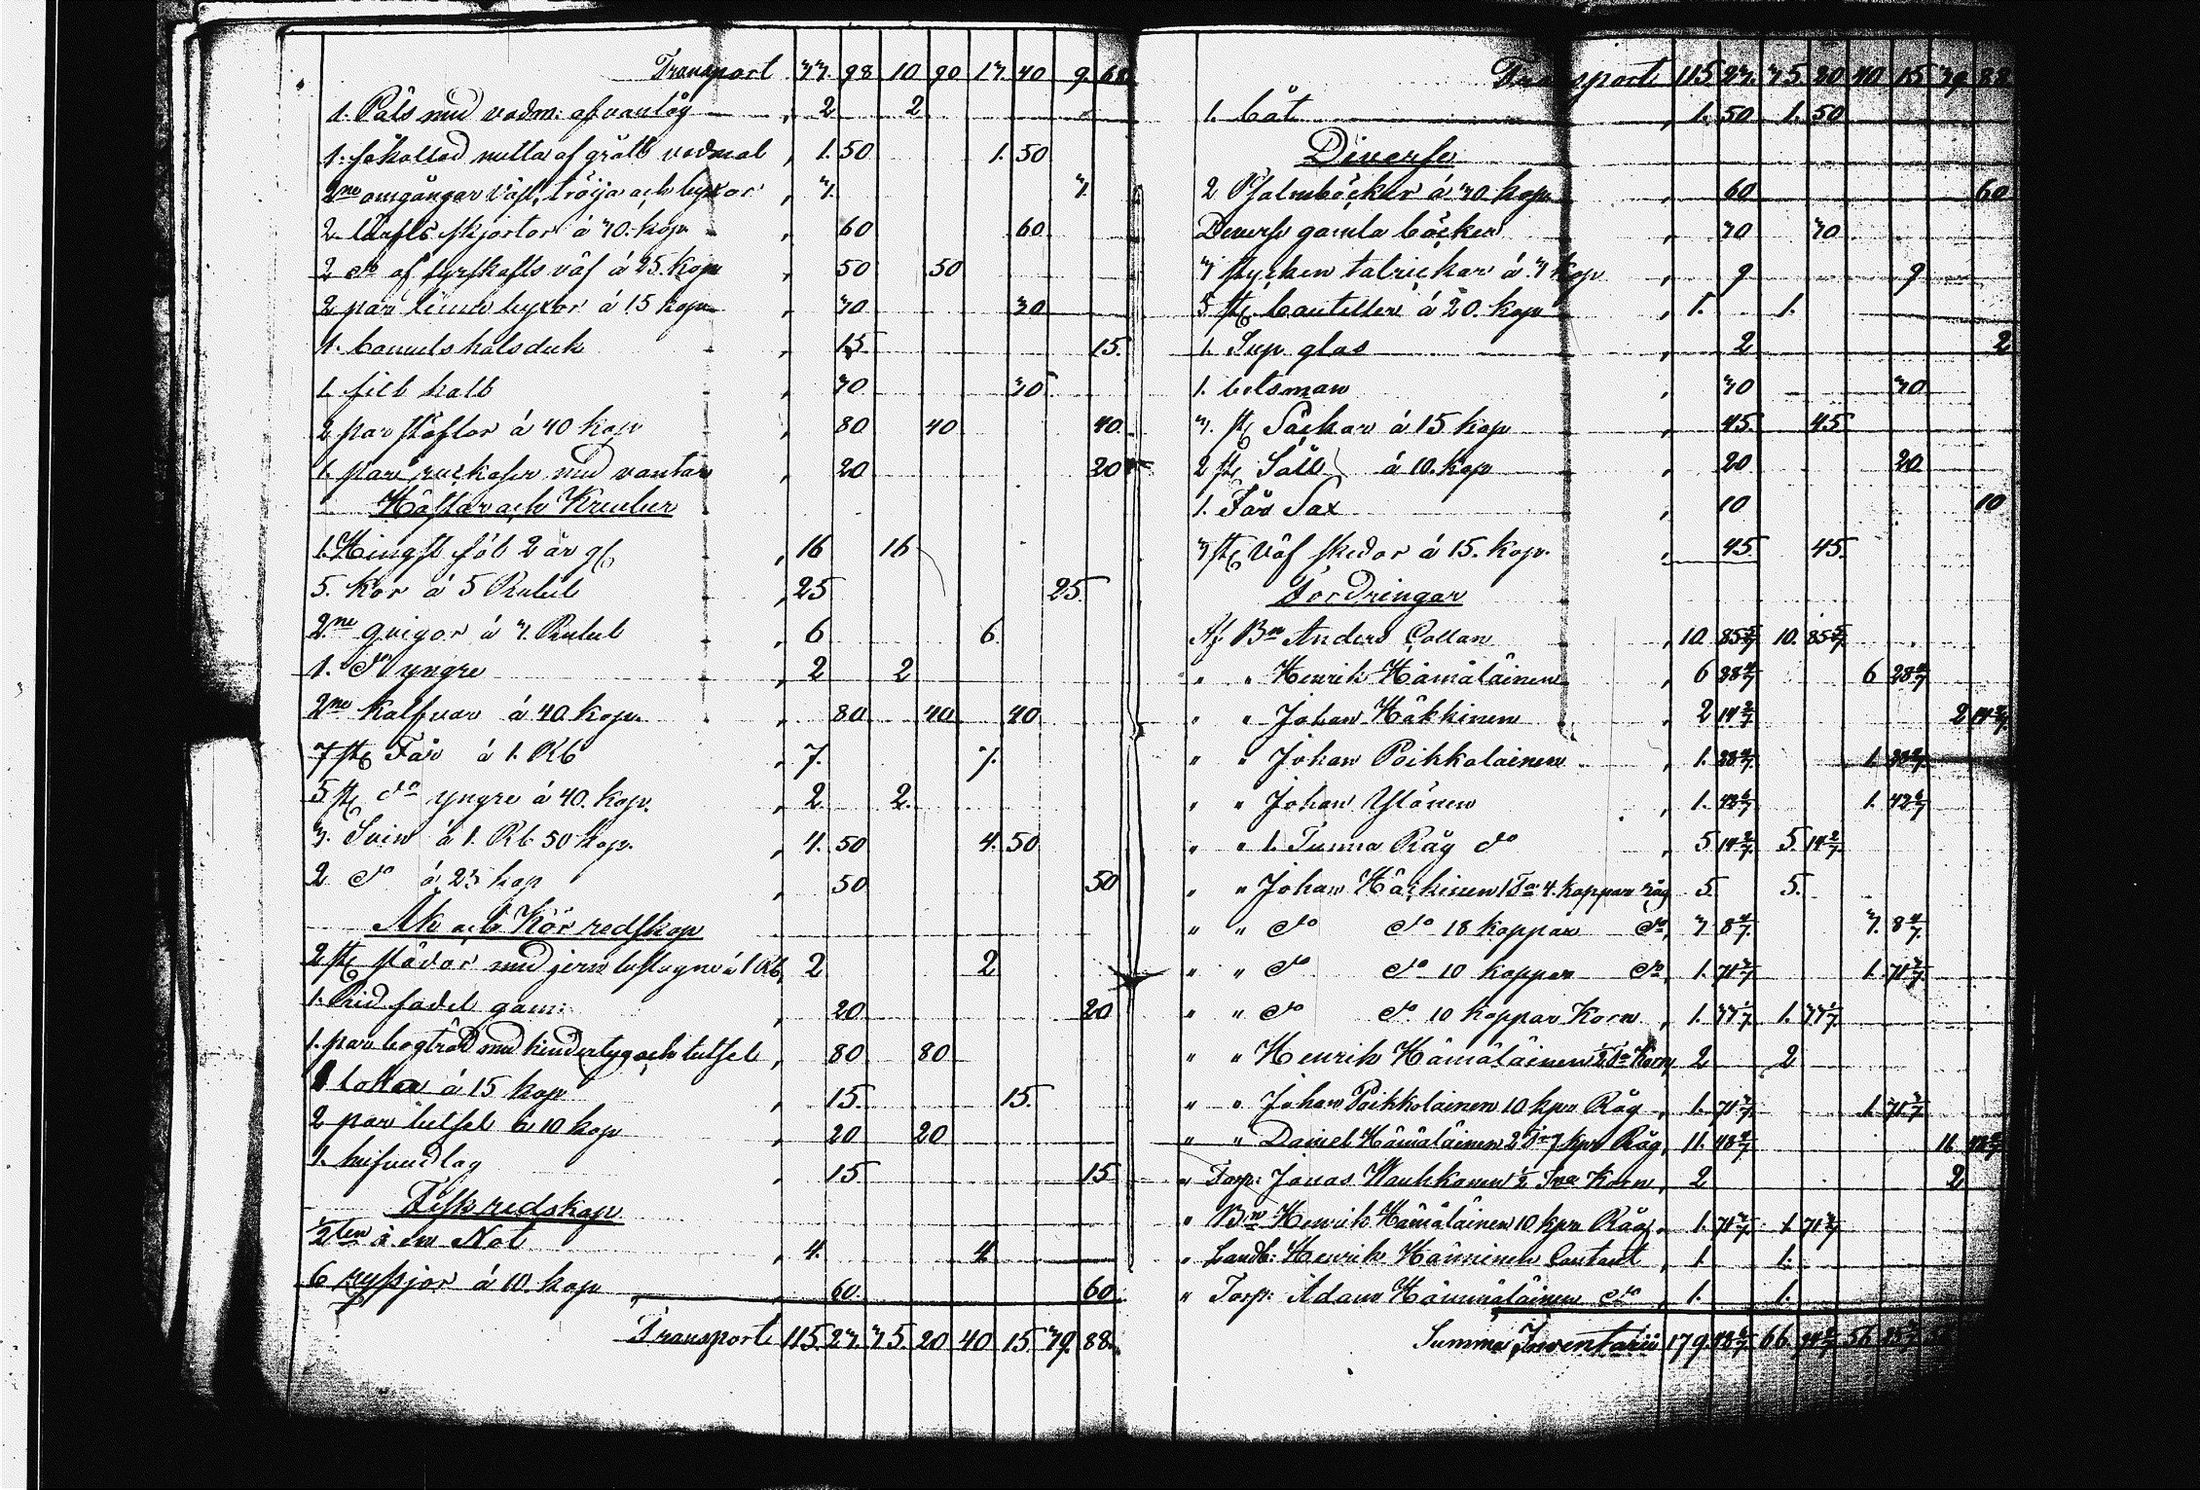 Transport 33. 98 10 90 13 40 9. 68
1. Päls med vadm: afvantög 2 2
1. fåkallad mutta af grått vadmal 1. 50 1. 50
2ne omgångar väst, tröija och byxor 3. 3.
2 lärfts skjortor á 30. kop 60 60
2 do af fyrskafts väf á 25. kop 50 50
2 par linne byxor á 15 kop 30 30
1. bomuls halsduk 15. 15.
1. filt hatt 30 30
2 par stöflor á 40 kop 80 40 40
1. par ruckaser med vantar 20 20
Hästar och Kreatur
1. Hingst föl 2 år gl 16 16
5. Kor á 5 Rubel 25 25.
2ne qvigor á 3. Rubel 6 6.
1. do yngre 2 2
2ne Kalfvar á 40 kop. 80 40 40
7 st Får á 1. Rb 7. 7.
5 st do yngre á 40. kop. 2. 2.
3. Svin á 1. Rb 50 kop. 4. 50 4. 50
2 do á 25 kop 50 50
Åk och Kör redskap
2 st slädor med jern beslagne á 1 Rb 2 2
1. Rid sadel gam: 20 20
1. par bogträd med hindertyg och betsel 80 80
1 lokka á 15 kop 15. 15.
2 par betsel á 10 kop 20 20
1. hufvudlag 15 15
Fisk redskap
1/2ten i en Not 4. 4
6 ryssjor á 10. kop 60. 60
Transport 115. 23. 35. 20 40 15. 39. 88.
Transport 115. 23. 35. 20 40 15 39. 88
1. båt 1. 50 1. 50
Diverse
2 Psalmböcker á 30. kop 60 60
Diverse gamla böcker 30 30
3 stycken talrickar á 3 kop 9 9
5 st. bouteller á 20. kop 1. 1.
1. Sup glas 2 2
1. betsman 30 30
3. st Säckar á 15 kop 45. 45
2 st Såll á 10. kop 20 20
1. Får Sax 10 10
3 st Väf skedar á 15. kop. 45. 45.
Fordringar
Af Bn Anders Collan 10. 85 5/7 10. 85 5/7
" " Henrik Hämäläinen 6 28 4/7 6 28 4/7
" " Johan Häkkinen 2 14 2/7 2 14 2/7
" " Johan Poikkolainen 1. 28 4/7 1. 28 4/7
" " Johan Ylönen 1. 42 6/7 1. 42 6/7
" " 1. Tunna Råg do 5 14 2/7 5. 14 2/7
" " Johan Häckinen 1 Ta 4. kappar råg 5. 5.
" " do do 18 kappar do 3 8 4/7 3. 8 4/7
" " do do 10 kappar do 1. 71 3/7 1. 71 3/7
" " do do 10 kappar Korn 1. 33 1/7 1. 33 1/7
" " Henrik Hämäläinen 1/2 Ta Korn 2 2
" " Johan Poikkolainen 10 kpr Råg 1. 71 3/7 1. 71 3/7
" " Daniel Hämäläinen 2 Tr 7 kpr Råg 11. 48 4/7 11 48 4/7
" Torp: Jonas Wauhkonen 1/2 Tna Korn 2 2
" Bn Henrik Hämäläinen 10 kpr Råg 1. 71 3/7 1. 71 3/7
" Landb: Henrik Hänninen Contant 1 1.
" Torp: Adam Hämmäläinen do 1. 1.
Summa Inventarii 179. 66. 56